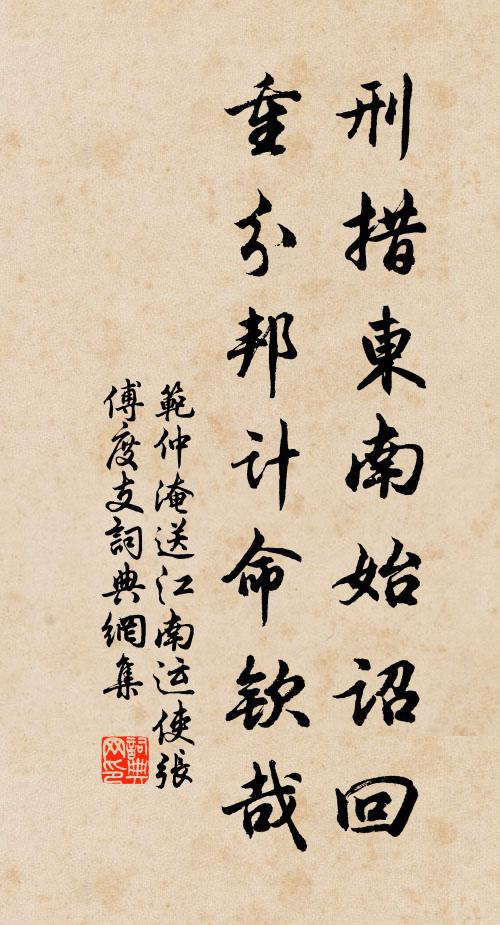 刑措東南始詔回
重分邦計命欽哉
範仲淹送江南运使張
傅度支詞典網集
詞典网印